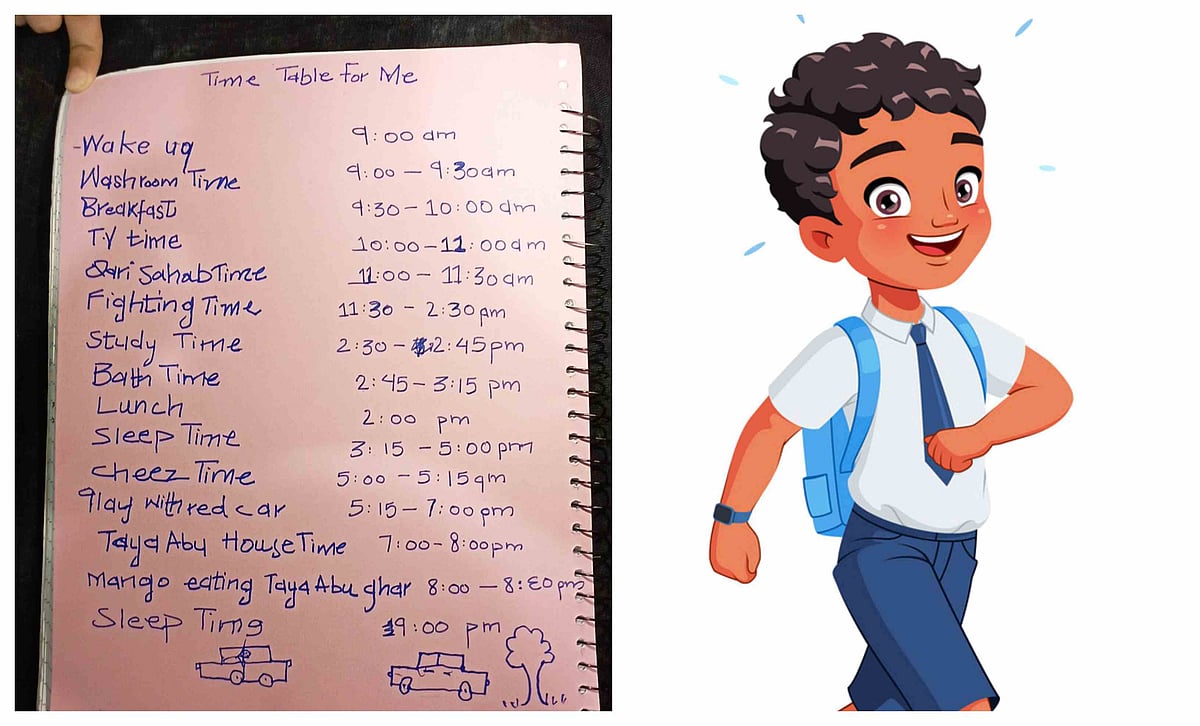 Time Table for Me
-Wake uq 9:00 am
Washroom Time 9:00 – 9:30am
Breakfast 9:30 – 10:00 am
TV time 10:00 – 11:00am
Qari Sahab Time 11:00 – 11:30am
Fighting Time 11:30 - 2:30pm
Study Time 2:30 – 2:45pm
Bath Time 2:45 – 3:15 pm
Lunch 2:00 pm
Sleep Time 3:15 – 5:00pm
cheez Time 5:00 – 5:15qm
qlay with red car 5:15 – 7:00pm
Taya Abu House Time 7:00 – 8:00pm
Mango eating Taya Abu ghar 8:00 – 8:30pm
Sleep Timg 9:00 pm